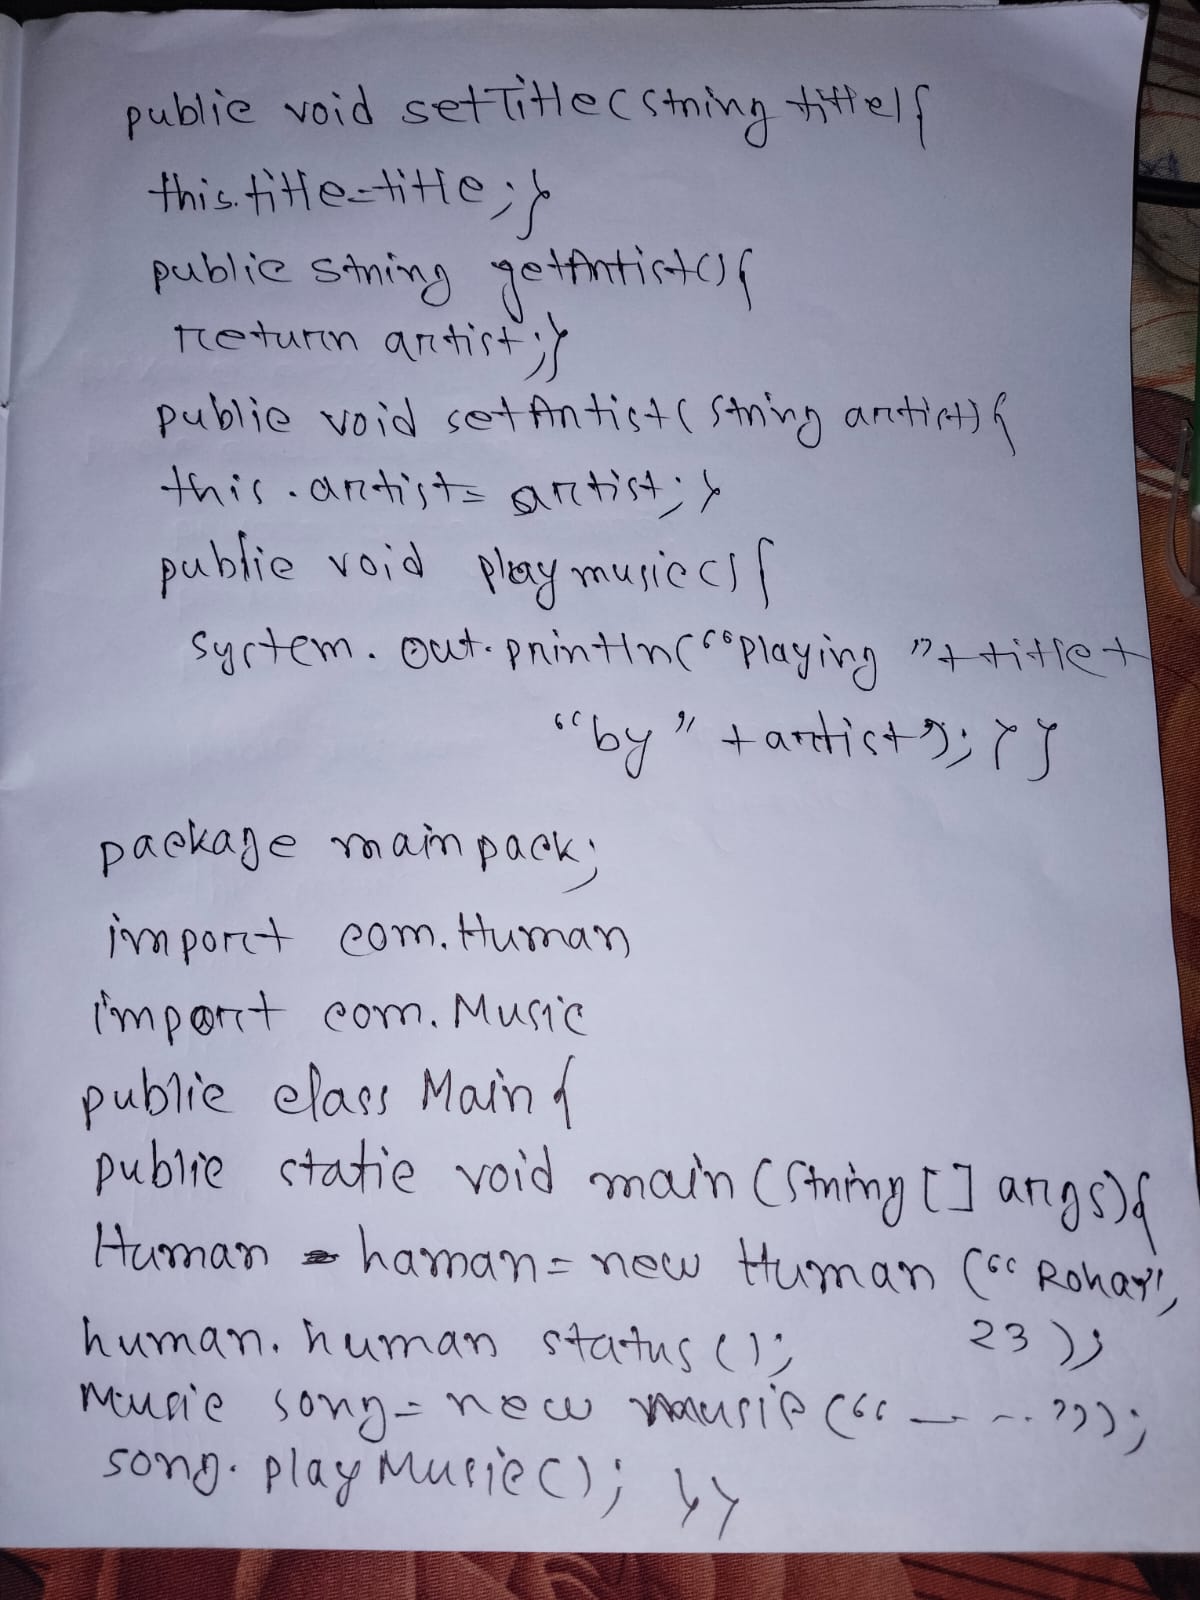 public void setTitle(string tittle){
this.title=title;}
public string getArtist(){
return artist;}
public void setArtist(string artist){
this.artist=artist;}
public void playmusic(){
system.out.println("playing "+title+
"by" +artist);}}
package mainpack;
import com.Human
import com.Music
public class Main{
public static void main(String[] args){
Human haman=new Human ("Rohan",
human.human status(); 23);
Music song=new music("—...");
song.playMusic(); }}